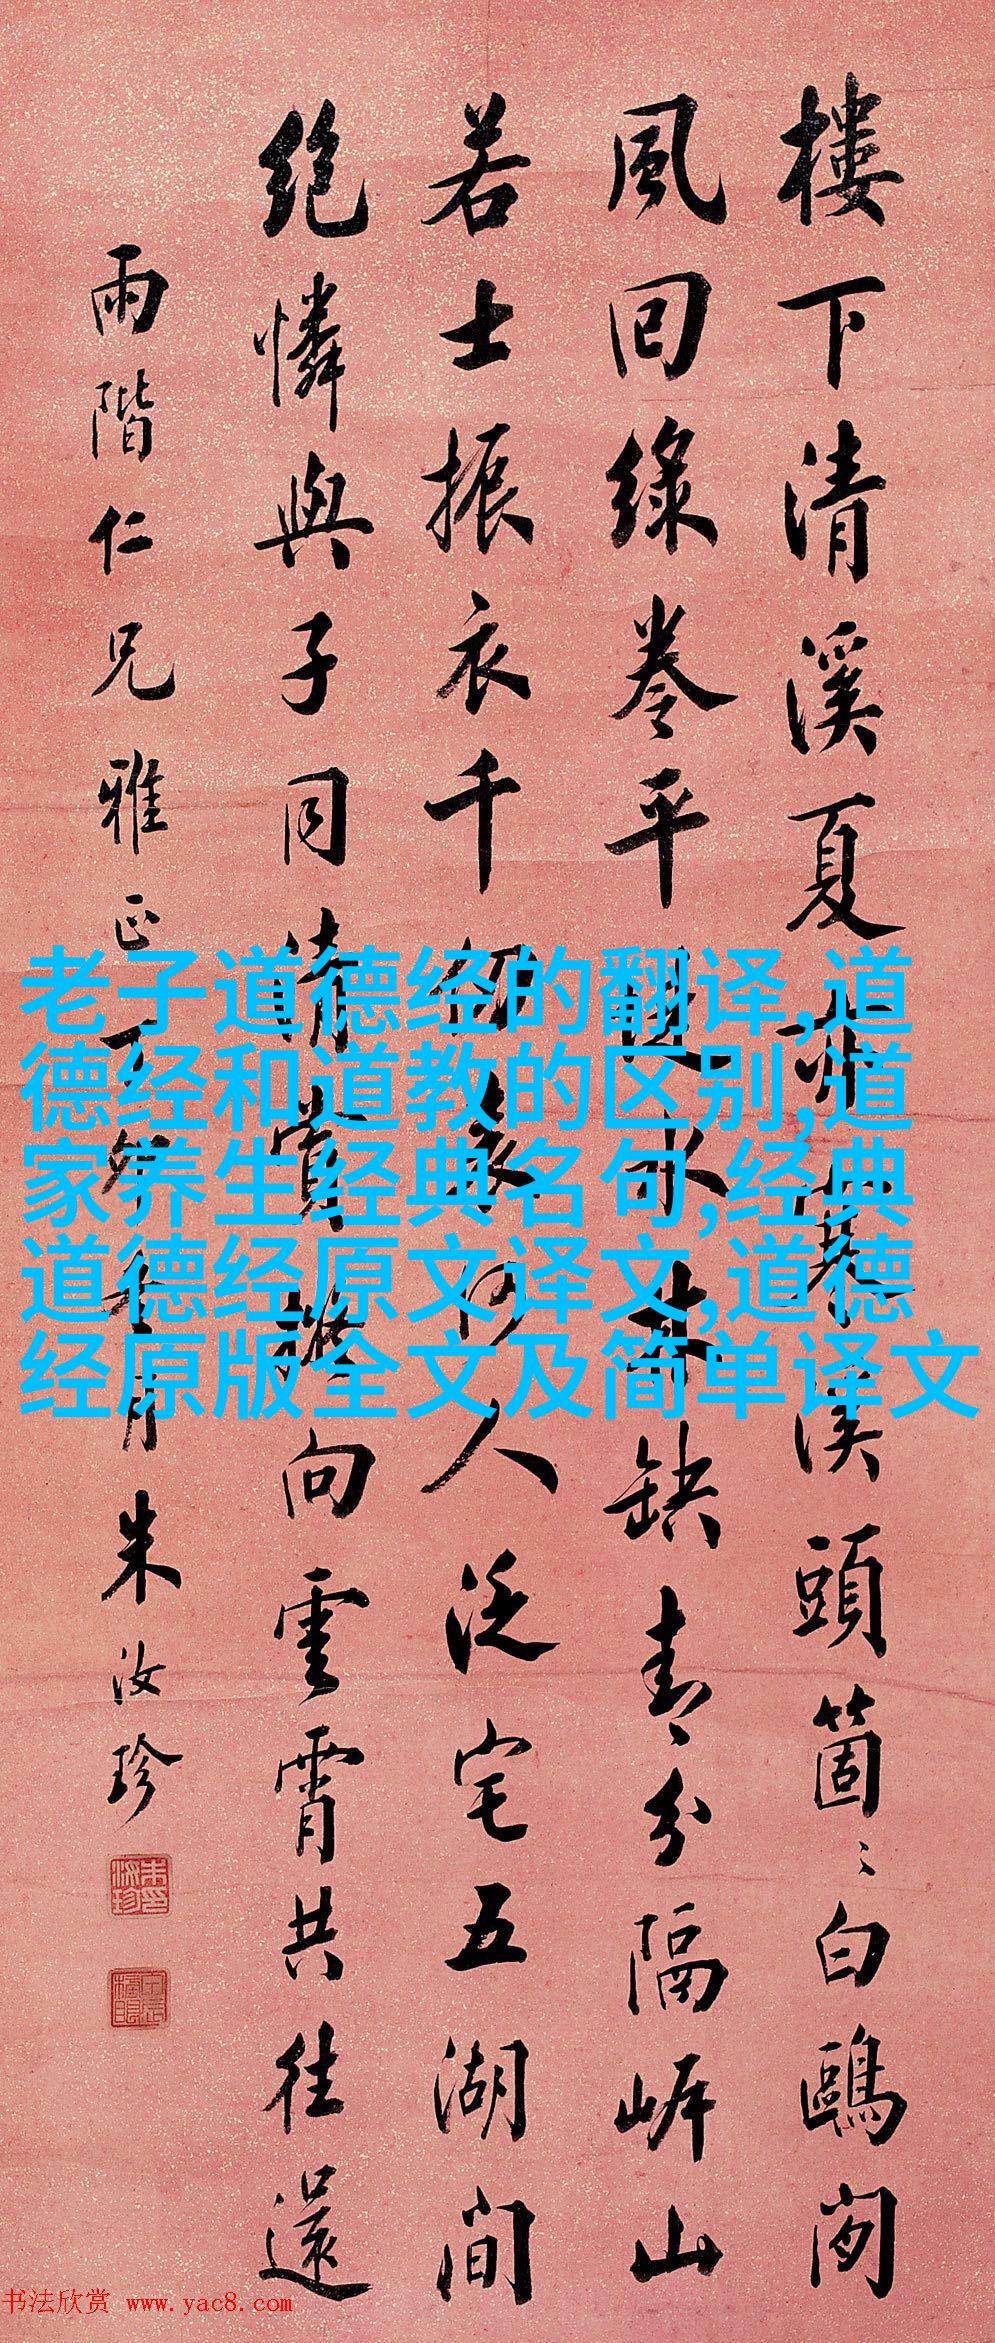 樓下清溪夏亦寒溪頭箇〻白鷗閑
風回綠卷平堤水林缺青〻分隔岸山
若士振衣千仞表何人泛宅五湖間
絕憐與子同清賞向雲霄共往還
雨階仁兄雅正月朱汝珍
朱汝珍印
甲辰榜眼
老子道德经的翻译,道
德经和道教的区别,道
家养生经典名句,经典
道德经原文译文,道德
经原版全文及简单译文
书法欣赏 www.yac8.com